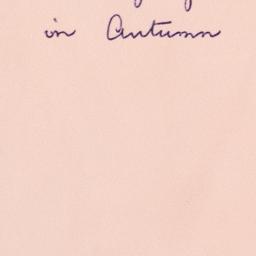 in Autumn